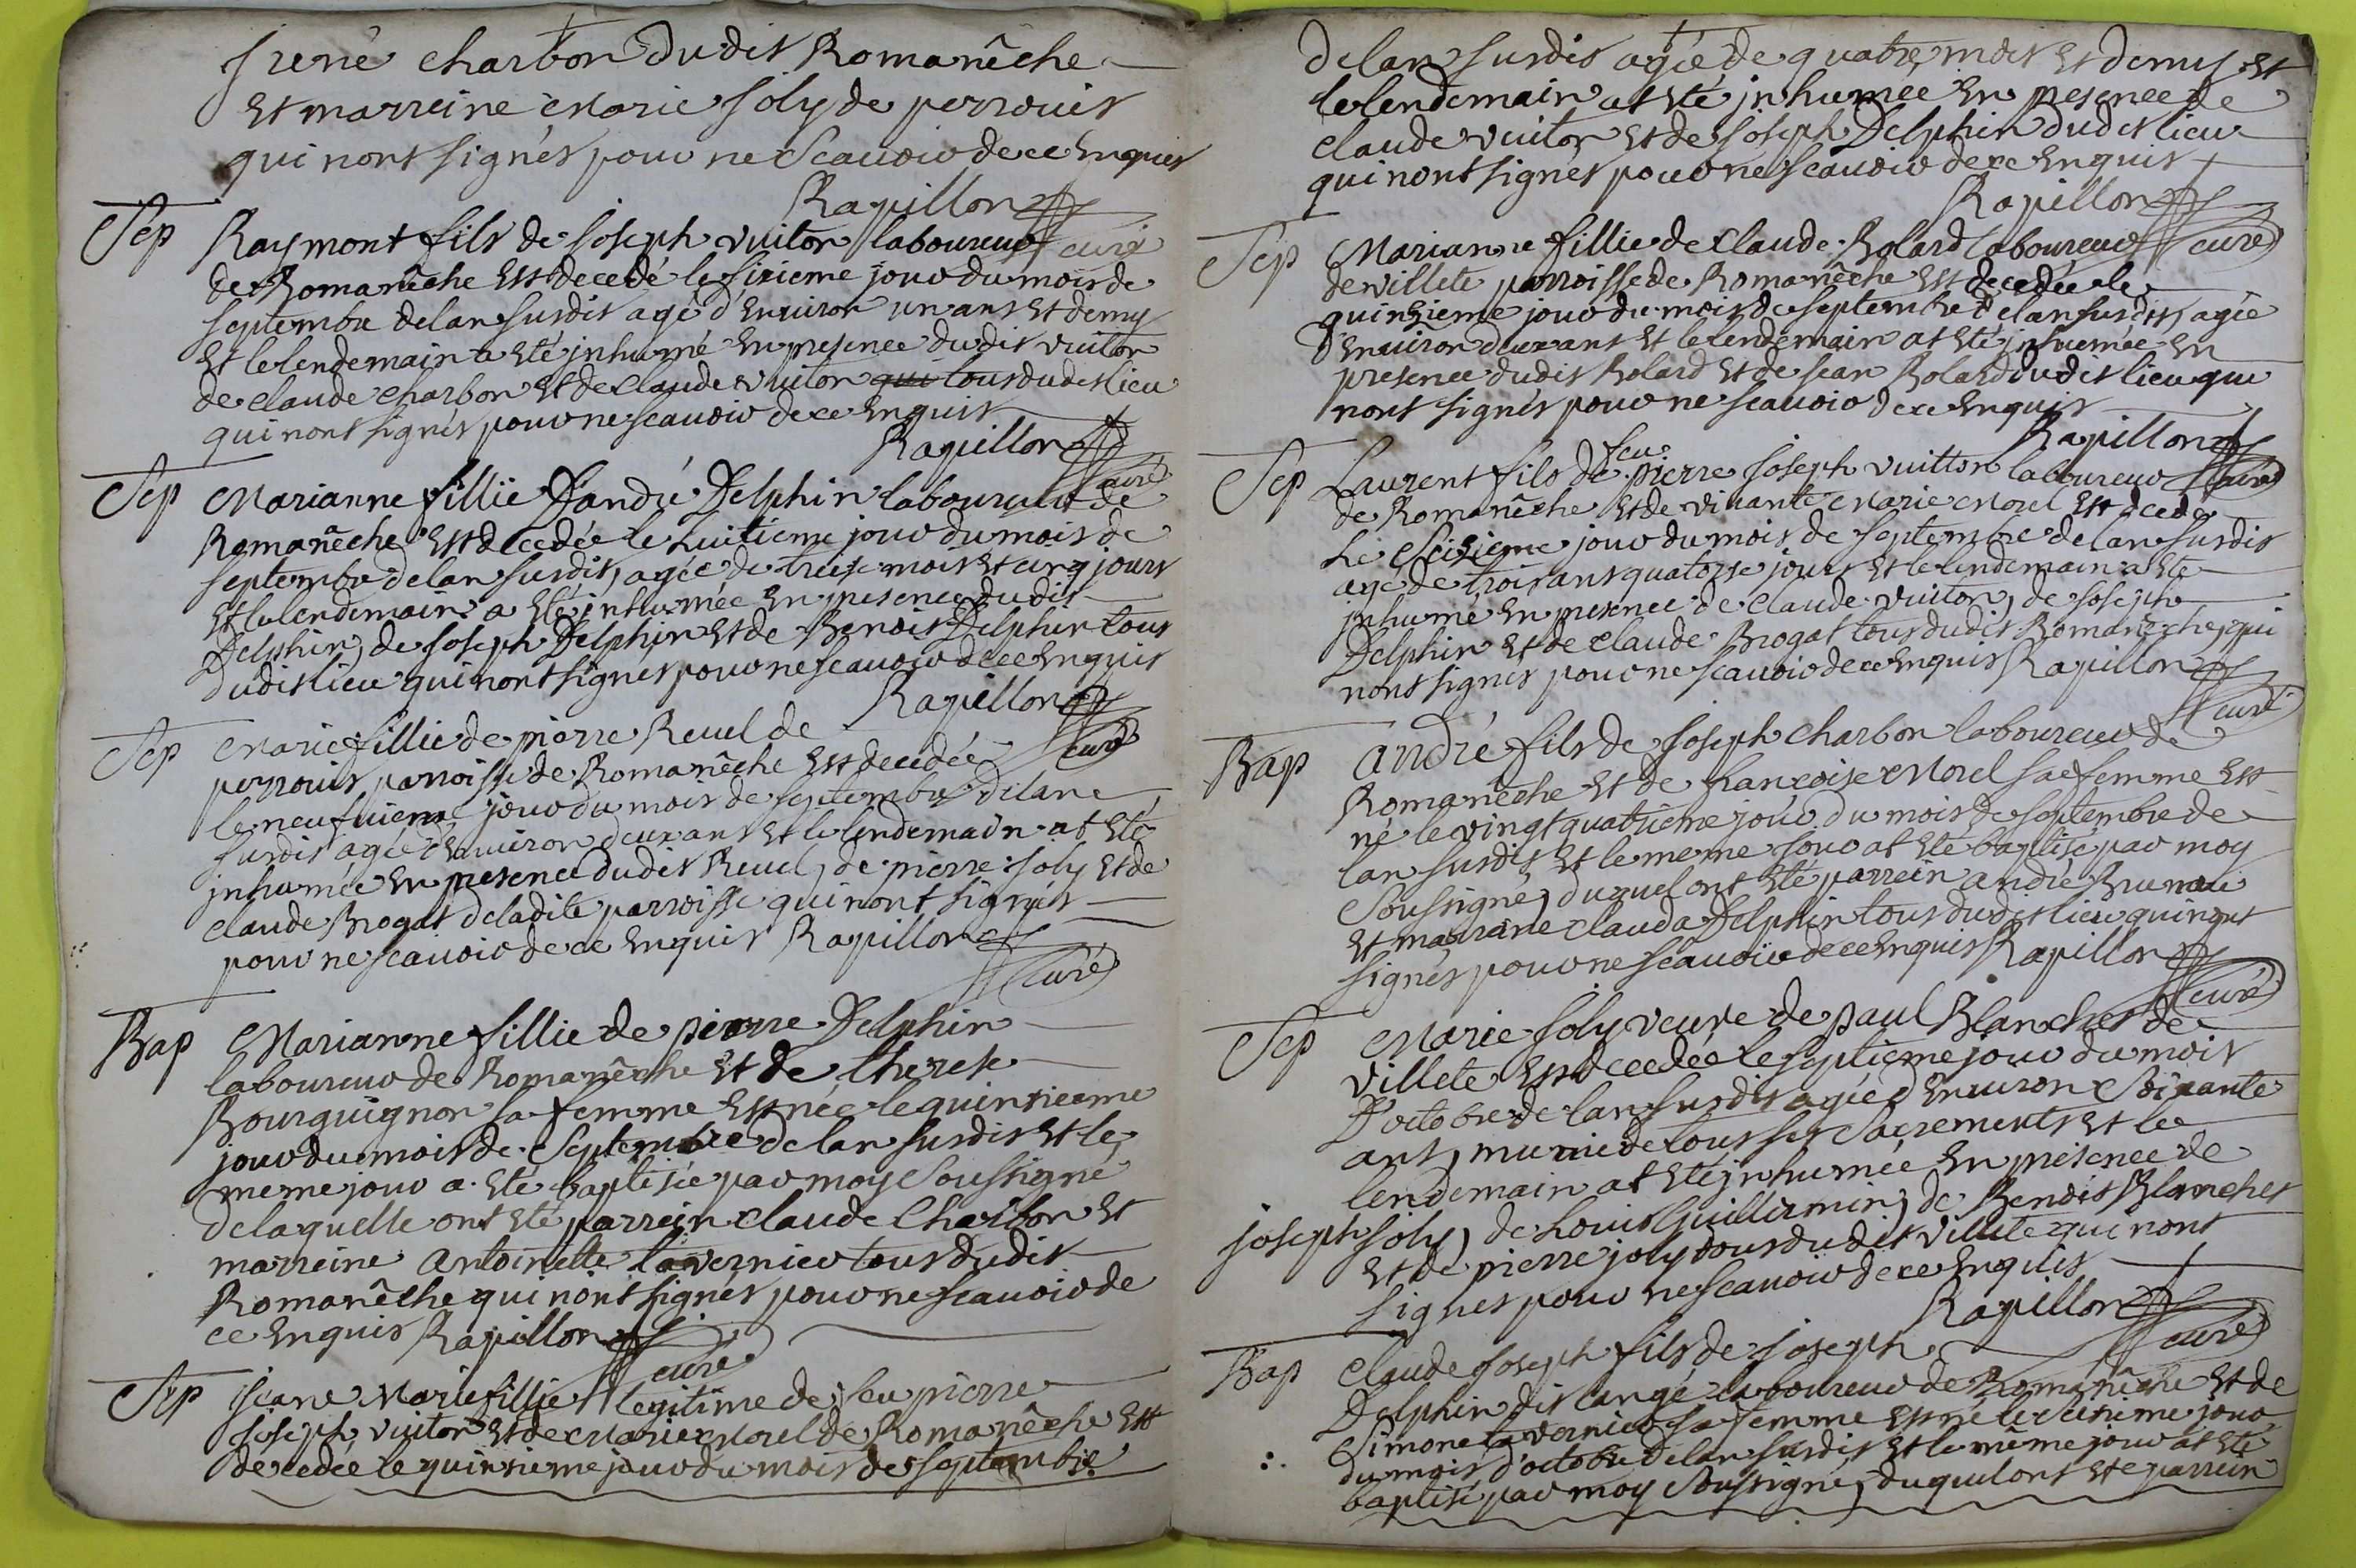 Irené charbon dudit Romanêche
Et marreine Marie Joly de perrouis
qui nont signés pour ne scauoir de ce Enquis
Rapillon curé
Sep Raymont fils de Joseph vuiton laboureur
de Romanêche Est decedé le sixieme jour du mois de
septembre de lan susdit agé d'Enuiron un ans Et demy
Et le lendemain a Eté jnhumé En presence dudit vuiton
de claude charbon Et de Claude vuiton qui tous dudit lieu
qui nont signés pour ne scauoir de ce Enquis
Rapillon curé
Sep Marianne fillie D'andré Delphin laboureur de
Romanêche Est decedée le huitieme jour du mois de
septembre de lan susdit, agée de treise mois Et cinq jours
Et le lendemain a Eté inhumée En presence dudit
Delphin, de Joseph Delphin Et de Benoit Delphin tous
dudit lieu qui nont signés pour ne scauoir de ce Enquis
Rapillon curé
Sep Marie fillie de pierre Reuel de
perrouis parroisse de Romanêche Est decedée
le neufuieme jour du mois de septembre de lan
susdit agée d'Enuiron deux ans Et le lendemain at Eté
jnhumée En presence dudit Reuel, de pierre Joly Et de
Claude Brogat de ladite parroisse qui nont signés
pour ne scauoir de ce Enquis Rapillon
curé
Bap Marianne fillie de pierre Delphin
laboureur de Romanêche Et de therese
Bourguignon sa femme Est née le quinsieme
jour du mois de Septembre de lan susdit Et le
meme jour a Eté baptisée par moy Soussigné
de laquelle ont Eté parrein claude Charbon Et
marreine Antoinette lavernier tous dudit
Romanêche qui nont signés pour ne scauoir de
ce Enquis Rapillon
curé
Sep jeane Marie fillie legitime de feu pierre
Joseph vuiton Et de Marie Morel de Romanêche Est
decedée le quinsieme jour du mois de septembre
de lan susdit agée de quatre mois Et demy Et
le lendemain at Eté jnhumée En presence de
claude vuiton Et de Joseph Delphin dudit lieu
qui nont signés pour ne scauoir de ce Enquis
Rapillon curé
Sep Marianne fillie de Claude Rolard laboureur
de villete parroisse de Romanêche Est decedée le
quinsieme jour du mois de septembre de lan susdit, agée
D'Enuiron deux ans Et le lendemain at Eté jnhumée En
presence dudit Rolard Et de Jean Rolard dudit lieu qui
nont signés pour ne scauoir de ce Enquis
Rapillon curé
Sep Laurent fils de feu pierre Joseph vuitton laboureur
de Romanêche Et de viuante Marie Morel Est decedé
Le seisieme jour du mois de septembre de lan susdit
agé de trois ans quatorse jours Et le lendemain a Eté
jnhumé En presence de Claude vuiton, de Joseph
Delphin Et de claude Brogat tous dudit Romanêche, qui
nont signés pour ne scauoir de ce Enquis Rapillon
curé
Bap andré fils de Joseph charbon laboureur de
Romanêche Et de francoise Morel sa femme Est
né le vingt quatrieme jour du mois de septembre de
lan susdit Et le meme jour at Eté baptisé par moy
Soussigné, duquel ont Eté parrein andré Bruneau
Et marreine clauda Delphin tous dudit lieu qui nont
signés pour ne scauoir de ce Enquis Rapillon
curé
Sep Marie Joly veuve de paul Blanchet de
villete Est decedée le septieme jour du mois
D'octobre de lan susdit agée d'Enuiron Soixante
ans, munie de tous ses Sacrements Et le
lendemain at Eté jnhumée En presence de
joseph Joly, de Louis Guillermin, de Benoit Blanchet
Et de pierre joly tous dudit villete qui nont
signés pour ne scauoir de ce Enquis
Rapillon curé
Bap Claude Joseph fils de Joseph
Delphin dit laboureur de Romanêche Et de
Simone la vernier sa femme Est né le jour
du mois d'octobre de lan susdit Et le même jour at Eté
baptisé par moy Soussigné, duquel ont Eté parrein